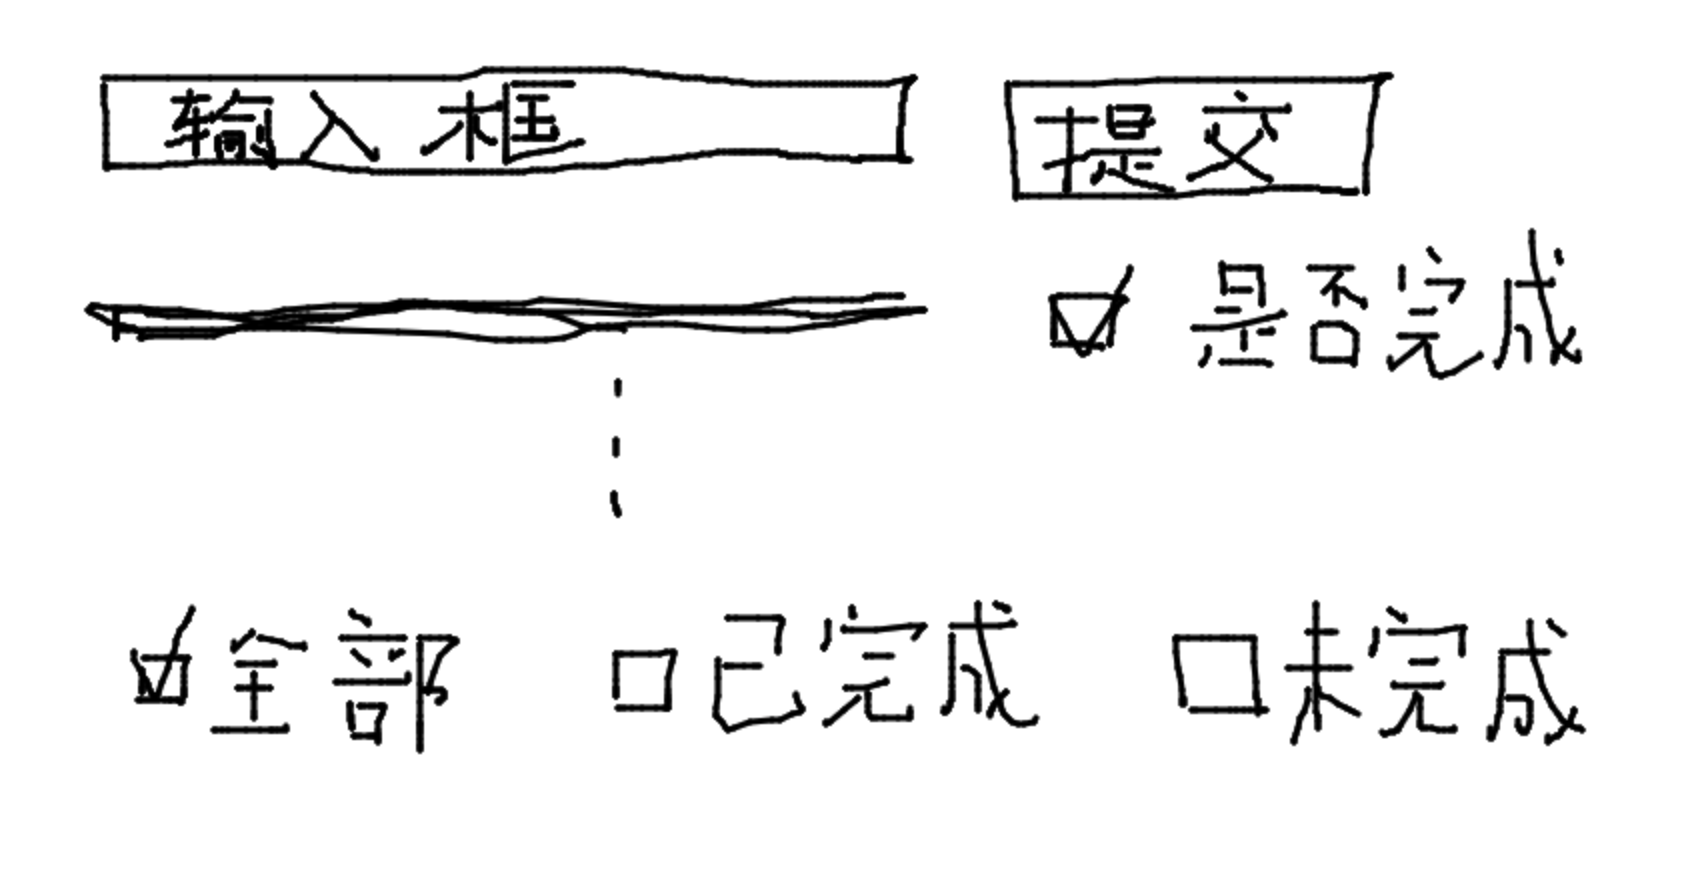 输入框 提交
是否完成
全部 已完成 未完成